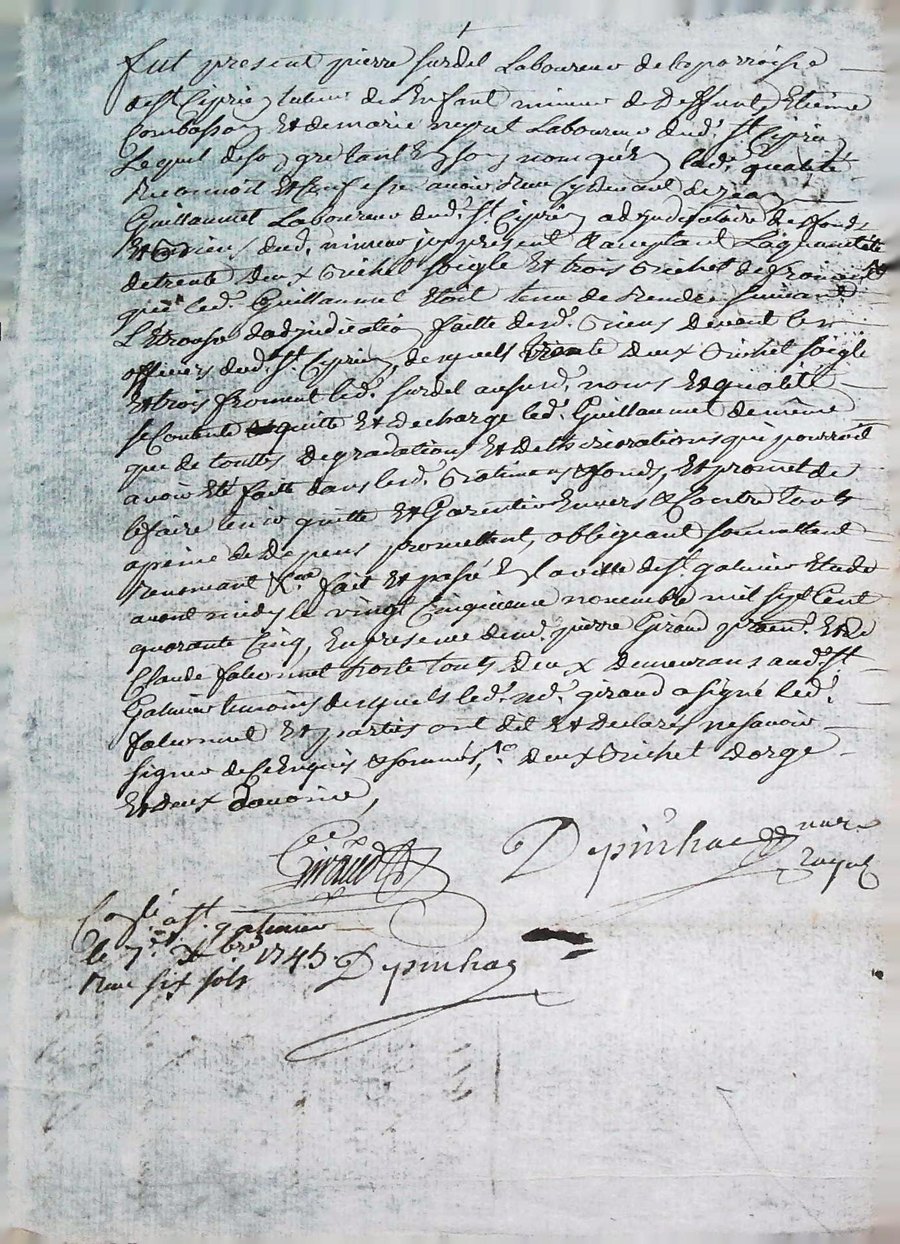 fut present pierre surdel Laboureur de la parroisse
de st Ciprien tuteur de L'Enfant mineur de Deffunts Etienne
Combasson Et de marie neyrat Laboureur dud.t st Ciprien
Lequel de son gré tant En son nom qu'en lad.e qualité
Reconnoit Et Confesse avoir Reçu Cy devant de Jean
Guillaumet Laboureur dud.t st Ciprien adjudicataire des fonds
Et dud.t mineur icy present Et acceptant La quantité
de trente Deux Bichet soigle Et trois Bichet de froment
que led.t Guillaumet Etoit tenu de Rendre suivant
L'Etrousse d'adjudication faitte desd.ts Biens Devant les
officiers dud.t st Ciprien, desquels trente deux Bichet soigle
Et trois froment led.t surdel aususd.t noms Et qualité
se Contente quitte Et decharge led.t Guillaumet de même
que de touttes degradations Et deteriorations qui pourroit
avoir Eté faitte dans lesd.ts Batimens & fonds, Et promet de
le faire tenir quitte Et Garentir Envers & Contre touts
a peine de Depens promettant, obligeant soumettant
Renonçant &a fait Et passé En la ville de st galmier Etude
avant midy le vingt Cinquieme novembre mil sept Cent
quarante Cinq, En presence de pierre Giraud Et de
Claude falconnet touts deux demeurans aud.t st
Galmier temoins desquels led.t giraud a signé led.t
falconnet Et parties ont dit Et declarés ne savoir
signer de Ce Enquis & sommés, deux Bichet d'orge
Et deux d'avoine,
Giraud
Depinhac nore
Royal
Conllé a st galmier
le 7e Xbre 1745
Reçu six sols
Depinhac